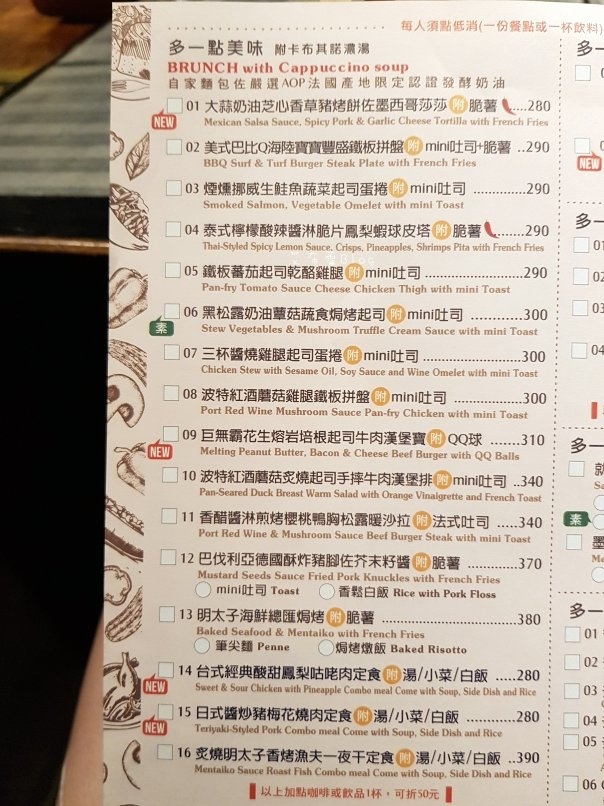 每人須點低消(一份餐點或一杯飲料)
多一點美味 附卡布其諾濃湯
BRUNCH with Cappuccino soup
自家麵包佐嚴選AOP法國產地限定認證發酵奶油
01 大蒜奶油芝心香草豬烤餅佐墨西哥莎莎 附 脆薯 ....280
NEW
Mexican Salsa Sauce, Spicy Pork & Garlic Cheese Tortilla with French Fries
02 美式巴比Q海陸寶寶豐盛鐵板拼盤 附 mini吐司+脆薯 ..290
BBQ Surf & Turf Burger Steak Plate with French Fries
03 煙燻挪威生鮭魚蔬菜起司蛋捲 附 mini吐司 ..............290
Smoked Salmon, Vegetable Omelet with mini Toast
04 泰式檸檬酸辣醬淋脆片鳳梨蝦球皮塔 附 脆薯 ......290
Thai-Styled Spicy Lemon Sauce. Crisps, Pineapples, Shrimps Pita with French Fries
05 鐵板蕃茄起司乾酪雞腿 附 mini吐司 ......................290
Pan-fry Tomato Sauce Cheese Chicken Thigh with mini Toast
06 黑松露奶油蕈菇蔬食焗烤起司 附 mini吐司 ..............300
素
Stew Vegetables & Mushroom Truffle Cream Sauce with mini Toast
07 三杯醬燒雞腿起司蛋捲 附 mini吐司 ......................300
Chicken Stew with Sesame Oil, Soy Sauce and Wine Omelet with mini Toast
08 波特紅酒蘑菇雞腿鐵板拼盤 附 mini吐司 .................300
Port Red Wine Mushroom Sauce Pan-fry Chicken with mini Toast
09 巨無霸花生熔岩培根起司牛肉漢堡寶 附 QQ球 ......310
NEW
Melting Peanut Butter, Bacon & Cheese Beef Burger with QQ Balls
10 波特紅酒蘑菇炙燒起司手摔牛肉漢堡排 附 mini吐司 ..340
Pan-Seared Duck Breast Warm Salad with Orange Vinaigrette and French Toast
11 香醋醬淋煎烤櫻桃鴨胸松露暖沙拉 附 法式吐司 .....340
Port Red Wine & Mushroom Sauce Beef Burger Steak with mini Toast
12 巴伐利亞德國酥炸豬腳佐芥末籽醬 附 脆薯 ..........370
Mustard Seeds Sauce Fried Pork Knuckles with French Fries
mini吐司 Toast 香鬆白飯 Rice with Pork Floss
13 明太子海鮮總匯焗烤 附 脆薯 ............................380
Baked Seafood & Mentaiko with French Fries
筆尖麵 Penne 焗烤燉飯 Baked Risotto
14 台式經典酸甜鳳梨咕咾肉定食 附 湯/小菜/白飯 ......280
NEW
Sweet & Sour Chicken with Pineapple Combo meal Come with Soup, Side Dish and Rice
15 日式醬炒豬梅花燒肉定食 附 湯/小菜/白飯 ............280
NEW
Teriyaki-Styled Pork Combo meal Come with Soup, Side Dish and Rice
16 炙燒明太子香烤漁夫一夜干定食 附 湯/小菜/白飯 ..390
Mentaiko Sauce Roast Fish Combo meal Come with Soup, Side Dish and Rice
以上加點咖啡或飲品1杯，可折50元
多一
NEW
多一
01
02
03
04
多一
素
多一
01
02
03
04
05
06